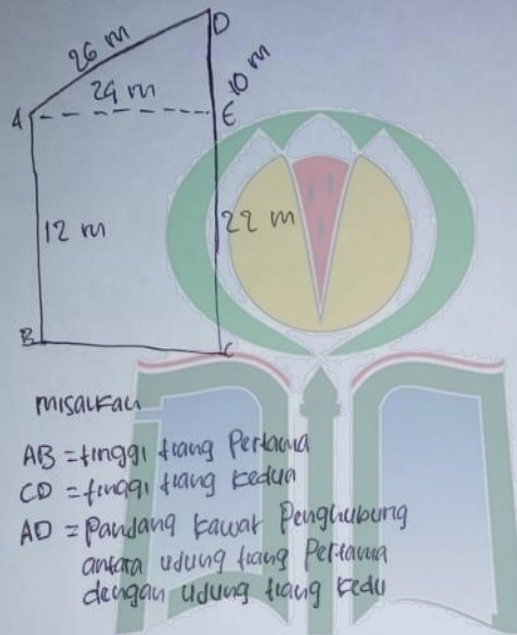 D
26 m
24 m
10 m
A
E
12 m
22 m
B
C
misalkan
AB = tinggi tiang Pertama
CD = tinggi tiang kedua
AD = Panjang kawat Penghubung
antara ujung tiang Pertama
dengan ujung tiang kedu